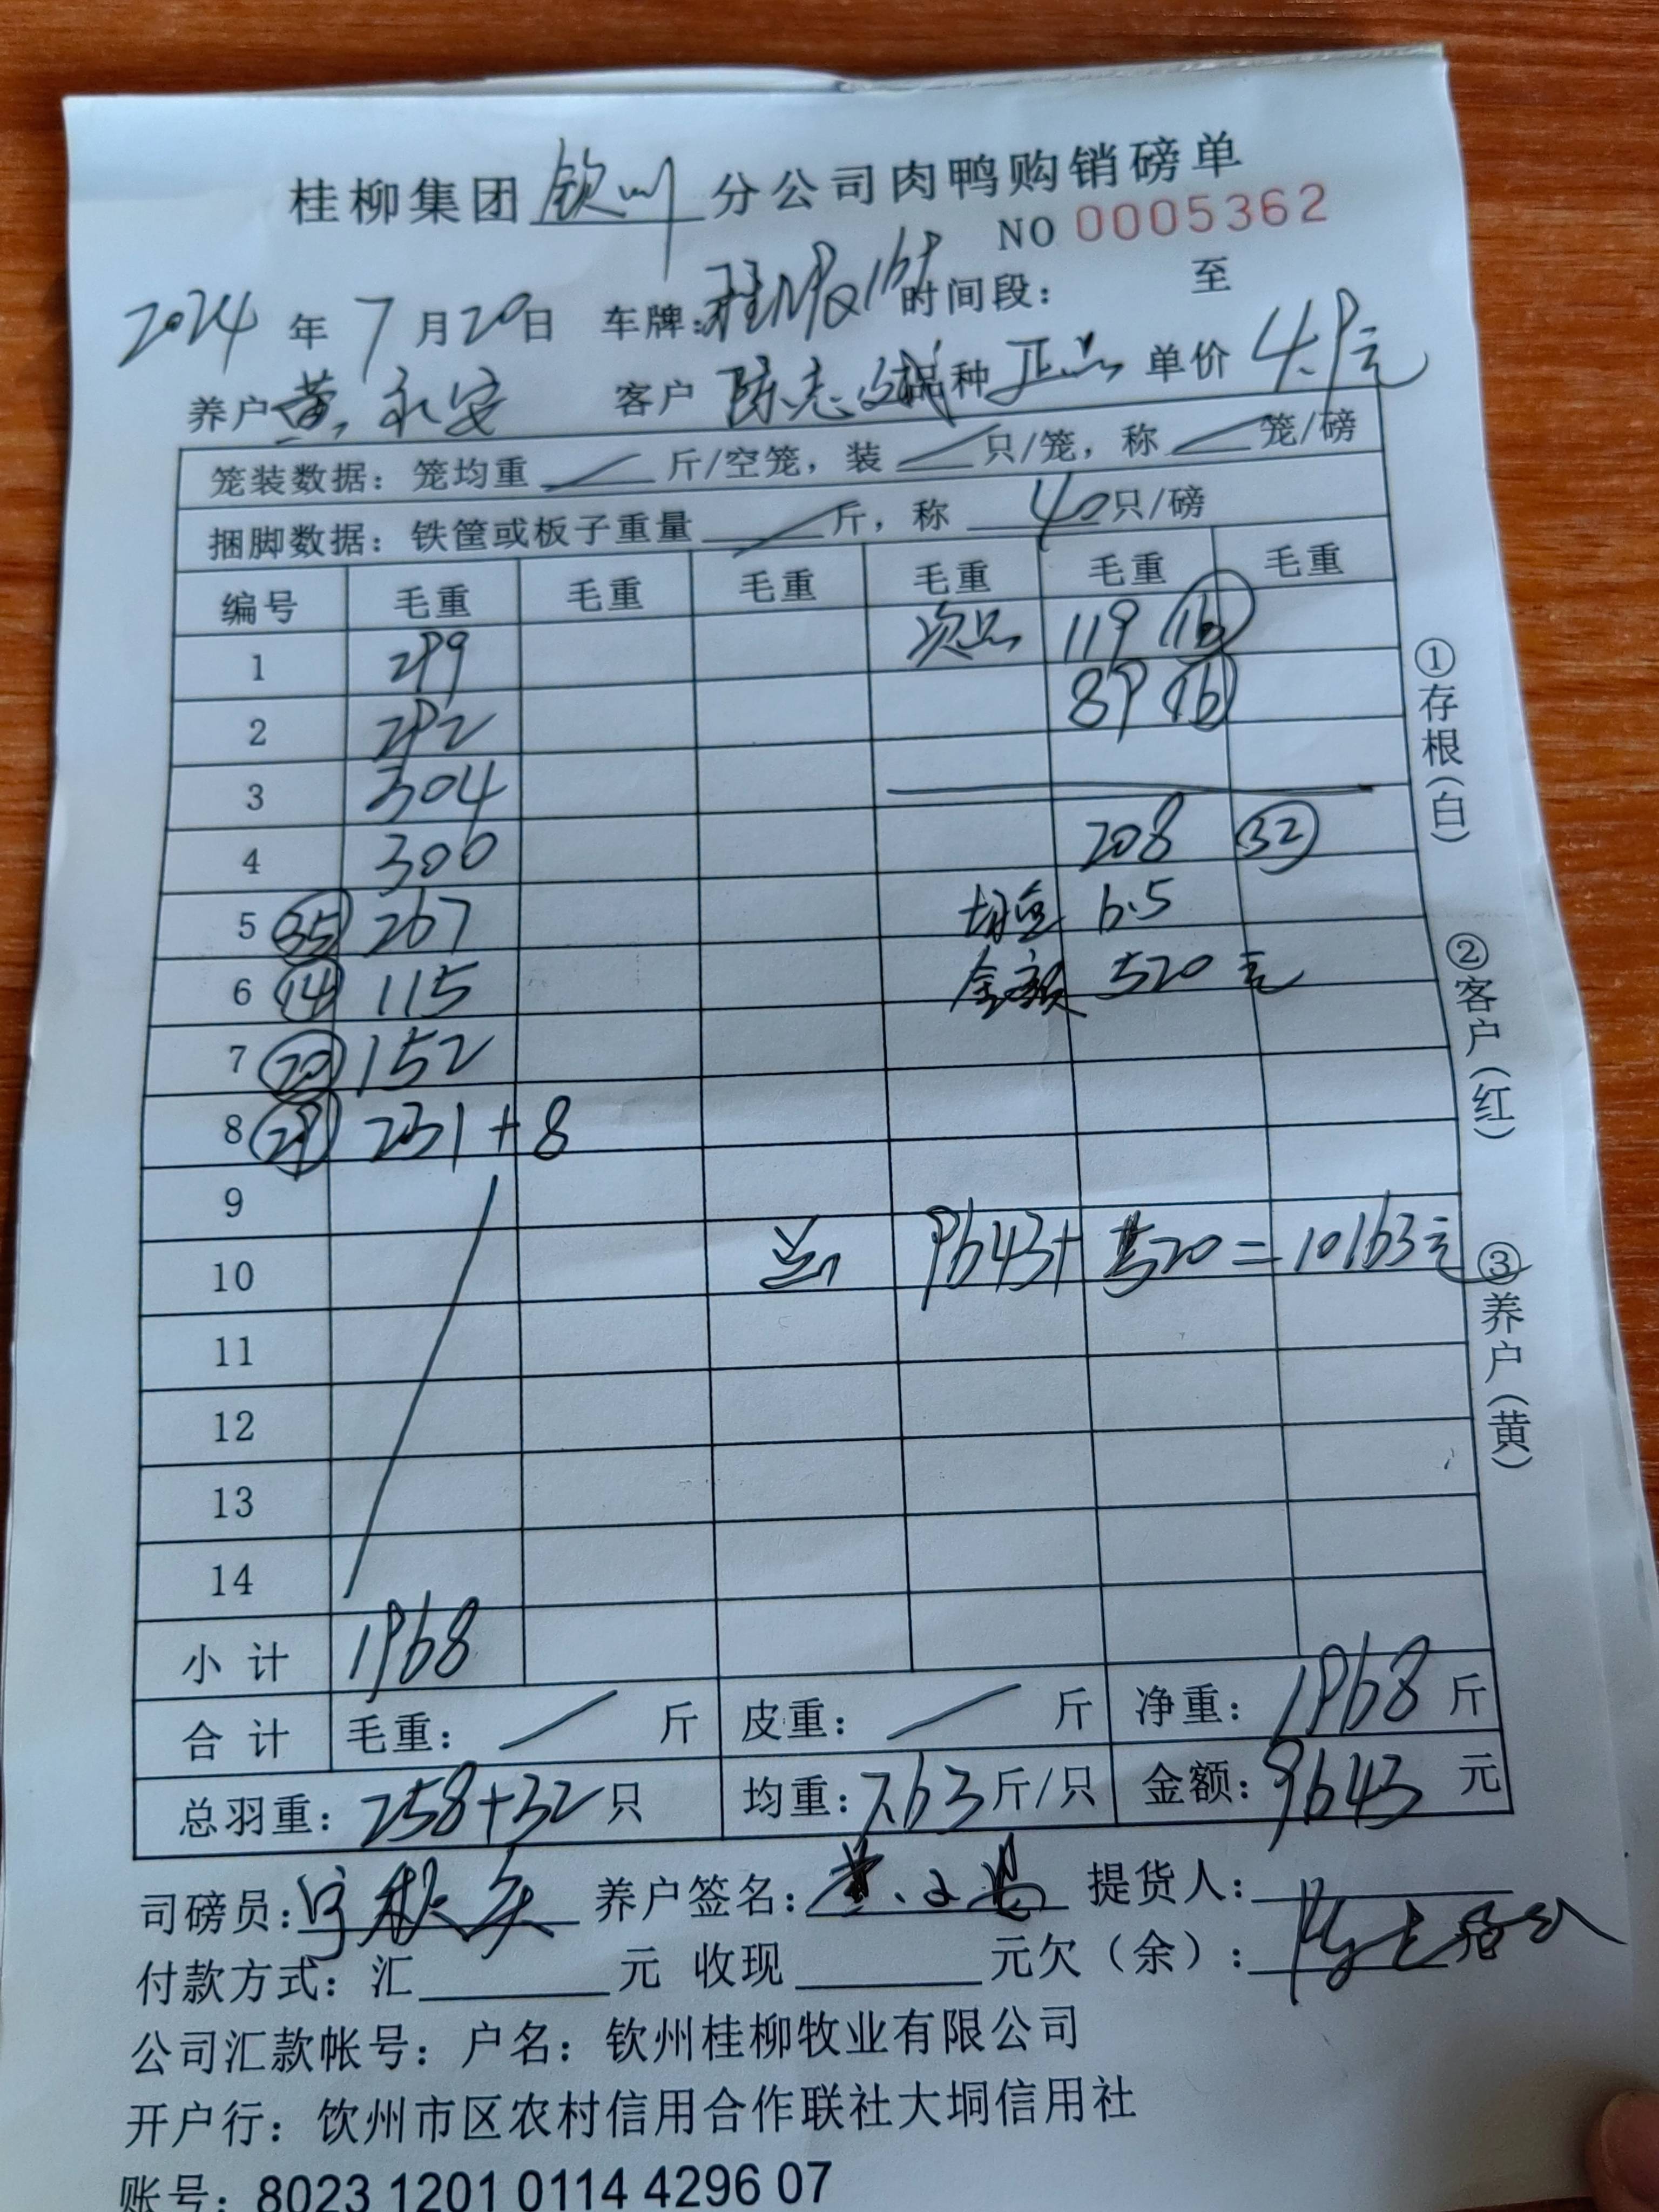 桂柳集团钦州分公司肉鸭购销磅单
NO 0005362
2024年7月20日 车牌: 时间段： 至
养户黄永安 客户陈志斌 品种正品 单价4.9元
笼装数据：笼均重／斤/空笼，装／只/笼，称／笼/磅
捆脚数据：铁筐或板子重量／斤，称40只/磅
编号 毛重 毛重 毛重 毛重 毛重 毛重
1 299 次品 119 (16)
2 292 89 (16)
3 304
4 300 208 (32)
5 (35) 267 均重 6.5
6 (14) 115 金额 520元
7 (20) 152
8 (29) 231+8
9
10 总 9643+520=10163元
11
12
13
14
小计 1968
合计 毛重：／斤 皮重：／斤 净重：1968斤
总羽重：258+32只 均重：7.63斤/只 金额：9643元
①存根（白）
②客户（红）
③养户（黄）
司磅员: 养户签名: 提货人:
付款方式：汇 元 收现 元欠（余）:
公司汇款帐号：户名：钦州桂柳牧业有限公司
开户行：饮州市区农村信用合作联社大垌信用社
账号：8023 1201 0114 4296 07